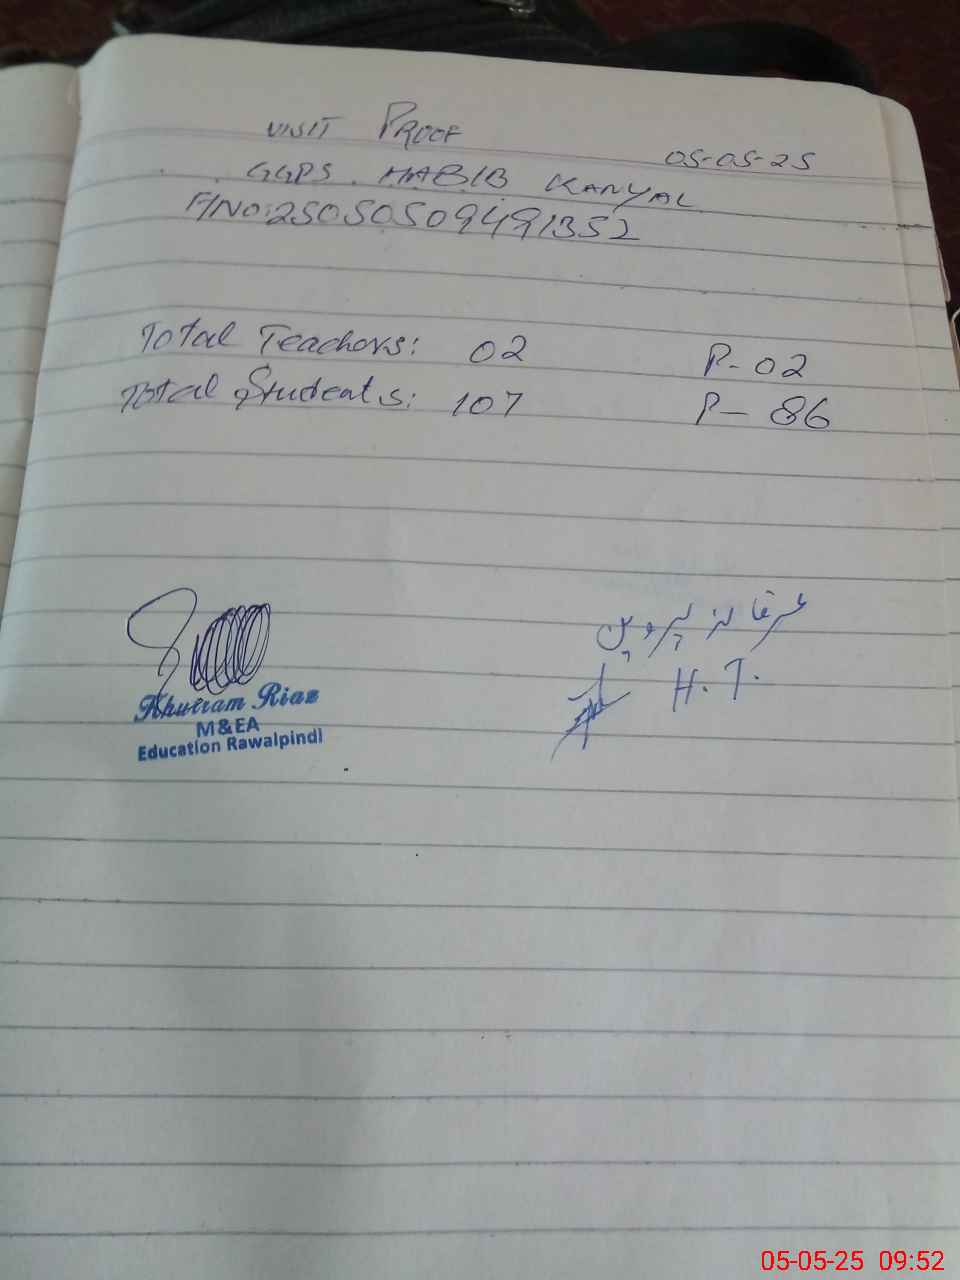 VISIT PROOF
05-05-25
GGPS HABIB KANYAL
F/NO:25050509491352
Total Teachers: 02 P-02
Total Students: 107 P-86
پروین
H.T.
Khurram Riaz
M&EA
Education Rawalpindi
05-05-25 09:52